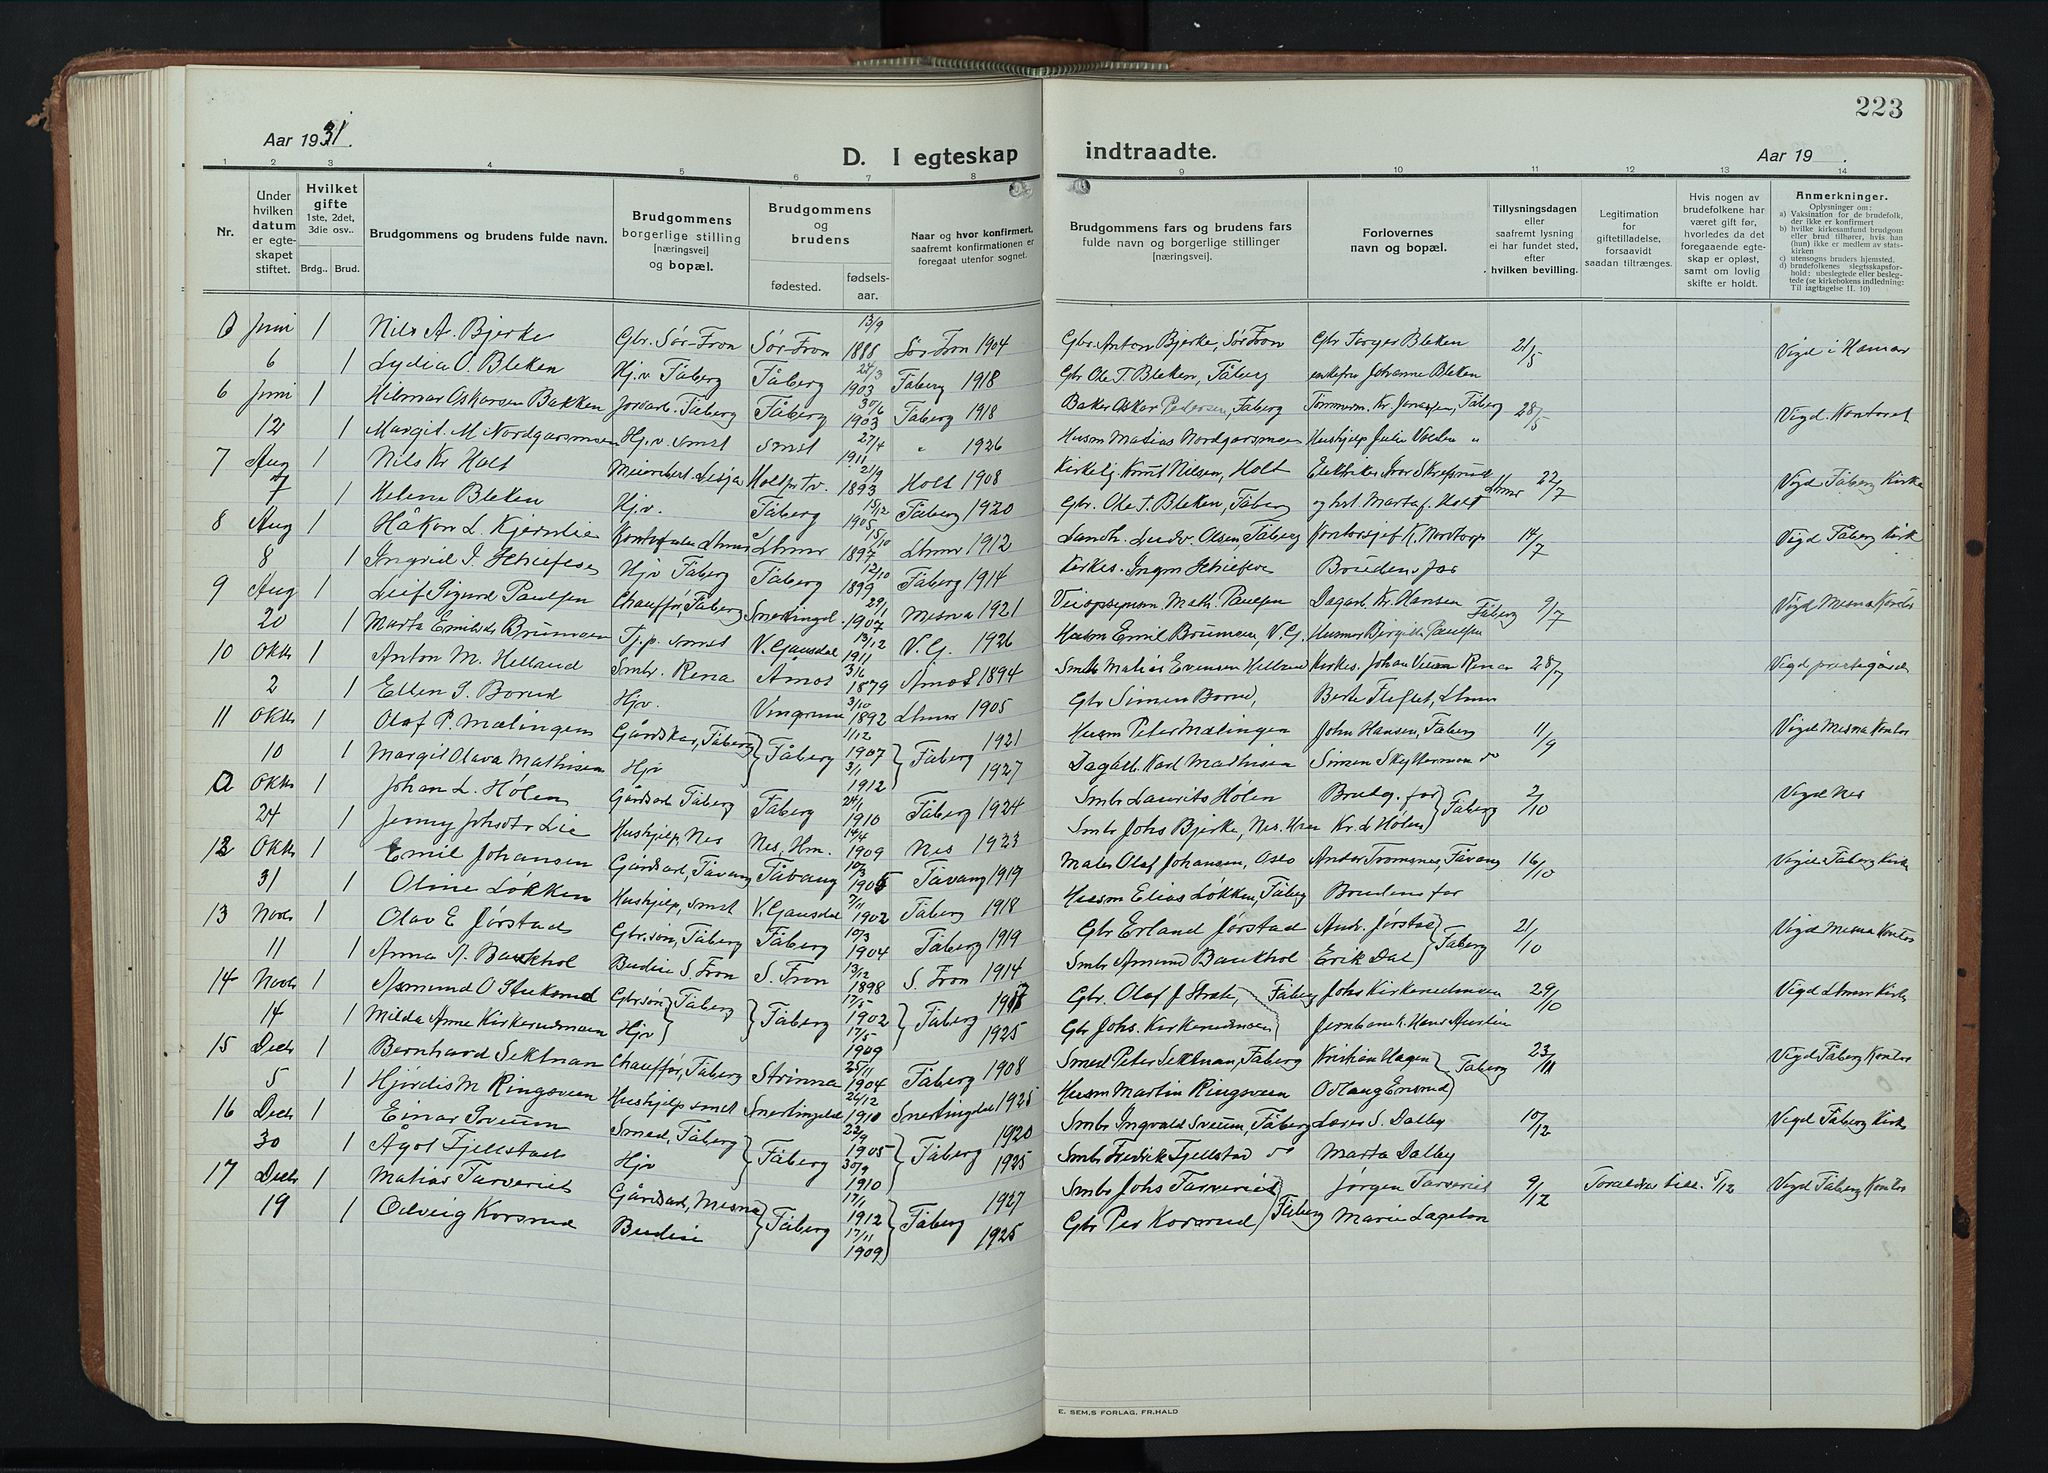 223
Aar 1931.
D. I egteskap indtraadte.
Aar 19 .
1 2 3 4 5 6 7 8 9 10 11 12 13 14
Nr.
Under hvilken datum er egte-skapet stiftet.
Hvilket gifte 1ste, 2det, 3die osv..
Brdg.. Brud.
Brudgommens og brudens fulde navn.
Brudgommens borgerlige stilling [næringsvei] og bopæl.
Brudgommens og brudens
fødested. fødsels-aar.
Naar og hvor konfirmert, saafremt konfirmationen er foregaat utenfor sognet.
Brudgommens fars og brudens fars fulde navn og borgerlige stillinger [næringsvei].
Forlovernes navn og bopæl.
Tillysningsdagen eller saafremt lysning ei har fundet sted, efter hvilken bevilling.
Legitimation for giftetilladelse, forsaavidt saadan tiltrænges.
Hvis nogen av brudefolkene har været gift før, hvorledes da det foregaaende egte-skap er opløst, samt om lovlig skifte er holdt.
Anmerkninger.
Oplysninger om:
a) Vaksination for de brudefolk, der ikke er konfirmert
b) hvilke kirkesamfund brudgom eller brud tilhører, hvis han (hun) ikke er medlem av stats-kirken
c) utensogns bruders hjemsted.
d) brudefolkenes slegtsskapsfor-hold: ubeslegtede eller besleg-tede (se kirkebokens indledning: Til iagttagelse II. 10)
Juni 1 Nils A. Bjerke Gbr. Sør-Fron Sør-Fron 13/9 1888 Sør-Fron 1904 Gbr. Anton Bjerke, Sør Fron Gbr Torger Bleken 21/5 Vigd i Hamar
6 1 Lydia O. Bleken Hj.v Fåberg Fåberg 1903 Fåberg 1918 Gbr Ole T. Bleken, Fåberg Johanne Bleken
6 Juni 1 Hilmar Oskarsen Bakken Jordarb. Fåberg Fåberg 30/6 1903 Fåberg 1918 Baker Oskar Pedersen, Fåberg Tømmerm. Kr. Fåberg 28/5 Vigd. Kontoret
12 1 Margit M Nordgarsmoen Hj.v. smst smst 27/4 1911 " 1926 Husm Matias Nordgarsmoen Hushjelp Julie "
7 Aug 1 Nils Kr Holt Lesja Holt pr Tv. 21/9 1893 Holt 1908 Kirketj. Knut Nilsen, Holt Elektriker Ivar Lhmr 22/7 Vigd Fåberg Kirke
7 1 Helene Bleken Hj.v. Fåberg 15/12 1905 Fåberg 1920 Gbr. Ole T. Bleken, Fåberg Holt
8 Aug 1 Håkon L. Kjernlie Lhmr Lhmr 15/10 1897 Lhmr 1912 Landh. Ludv Olsen, Fåberg Kontorsjef K. Nordtorp 14/7 Vigd Fåberg Kirk
8 1 Hjv Fåberg Fåberg 12/10 1899 Fåberg 1914 Brudens far
9 Aug 1 Leif Sigurd Paulsen Chauffør, Fåberg Snertingd. 29/1 1907 Mesna 1921 Math. Paulsen Dagarb. Kr. Hansen Fåberg 9/7 Vigd Mesna Kontor
20 1 Marta Emilsdr Brumoen Tj.p. smst V. Gausdal 13/12 1911 V.G. 1926 Husm Emil Brumoen, V.G. Paulsen
10 Oktb 1 Anton M. Helland Smbr. Rena Åmot 1879 Åmot 1894 Smbr Matias Evensen Rena 28/7 Vigd prestegård
2 1 Ellen S. Borud Hjv. 3/10 1892 Lhmr 1905 Gbr Simen Borud, Berte Flugset, Lhmr
11 Oktb 1 Olaf P. Mælingen Gårdskar, Fåberg Fåberg 11/12 1907 Fåberg 1921 Husm Peter Mælingen John Hansen, Fåberg 11/9 Vigd Mesna Kontor
10 1 Margit Olava Mathisen Hjv 3/1 1912 1927 Dagarb. Karl Mathisen Simen Skytterm do
a Oktb 1 Johan L. Hølen Gårdsarb Fåberg Fåberg 24/1 1910 Fåberg 1924 Smbr Laurits Hølen Brudg. far Fåberg 2/10 Vigd Nes
24 1 Jenny Johsdtr Lie Hushjelp, Nes Nes, Hm. 14/4 1909 Nes 1923 Smbr Johs Bjerke, Nes. Kr. L. Hølen
12 Oktb 1 Emil Johansen Gårdsarb, Fåvang Fåvang 10/3 1905 Fåvang 1919 Maler Olaf Johansen, Oslo Anders Tromsnes, Fåvang 16/10 Vigd Fåberg Kirke
31 1 Oline Løkken Hushjelp, smst V. Gausdal 7/11 1902 Fåberg 1918 Husm Elias Løkken, Fåberg Brudens far
13 Novb 1 Olav E Jørstad Gbr.søn, Fåberg Fåberg 10/3 1904 Fåberg 1919 Gbr Erland Jørstad Andr. Jørstad Fåberg 21/10 Vigd Mesna Kontor
11 1 Anna A. Baukhol Budeie S. Fron S. Fron 13/12 1898 S. Fron 1914 Smbr Amund Baukhol Erik Dal
14 Novb 1 Asmund O Gbr.søn Fåberg Fåberg 17/5 1902 Fåberg Gbr. Olaf J. Fåberg Johs Kirkerudmoen 29/10 Vigd Lhmr Kirke
14 1 Milda Anne Kirkerudmoen Hjv 17/5 1909 1925 Gbr Johs. Kirkerudmoen Hans Austlid
15 Decb 1 Bernhard Sektnan Chauffør, Fåberg Strinna 25/11 1904 Fåberg 1908 Smed Peter Sektnan, Fåberg Kristian Hagen Fåberg 23/11 Vigd Fåberg Kontor
5 1 Hjørdis M Ringsveen Hushjelp smst Snertingdal 26/12 1910 Snertingdal 1925 Husm Martin Ringsveen Odlaug Ensrud
16 Decb 1 Einar Sveum Smed, Fåberg Fåberg 22/9 1905 Fåberg 1920 Smbr Ingvald Sveum, Fåberg Lærer S. Dalby 10/12 Vigd Fåberg Kirke
30 1 Ågot Fjellstad Hjv 30/9 1910 1925 Smbr Fredrik Fjellstad do Marta Dalby
17 Decb 1 Matias Tarveriet Gårdsarb, Mesna Fåberg 17/1 1912 Fåberg 1927 Smbr Johs Tarveriet Fåberg Jørgen Tarveriet 9/12 Foreldrer till. 5/12 Vigd Fåberg Kontor
19 1 Odveig Korsrud Budeie 17/11 1909 1925 Gbr Per Korsrud Marie
E. SEM,S FORLAG, FR.HALD